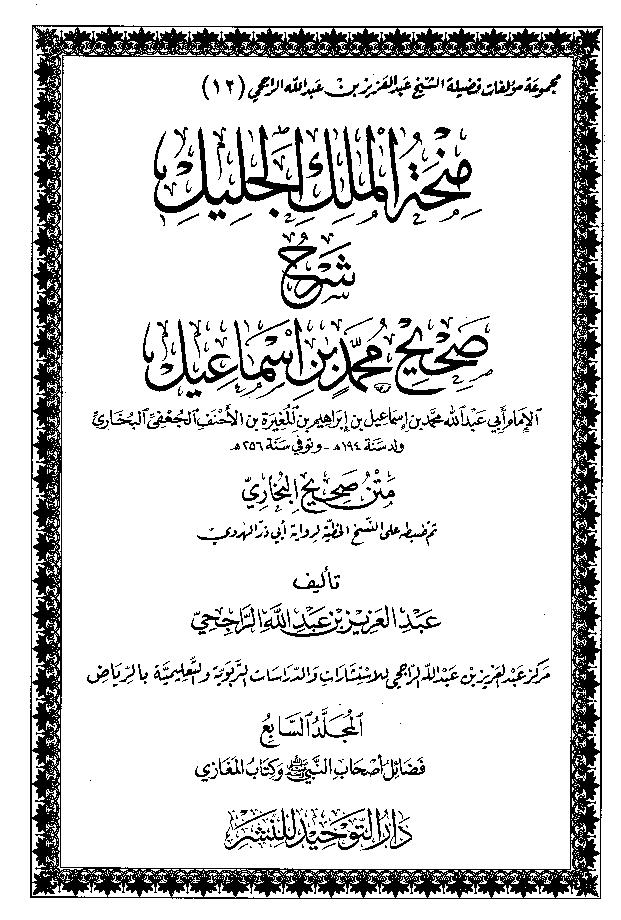 مجموعة مؤلفات فضيلة الشيخ عبد العزيز بن عبد الله الراجحي (١٢)
منحة الملك الجليل
شرح
صحيح محمد بن إسماعيل
الإمام أبي عبد الله محمد بن إسماعيل بن إبراهيم بن المغيرة بن الأحنف الجعفي البخاري
ولد سنة ١٩٤ه - وتوفي سنة ٢٥٦ه
متن صحيح البخاري
تم ضبطه على النسخ الخطية لرواية أبي ذر الهروي
تأليف
عبد العزيز بن عبد الله الراجحي
مركز عبد العزيز بن عبد الله الراجحي للاستشارات والدراسات التربوية والتعليمية بالرياض
المجلد السابع
فضائل أصحاب النبي ﷺ وكتاب المغازي
دار التوحيد للنشر